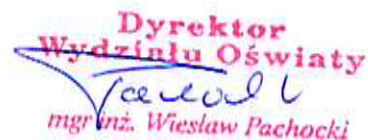 Dyrektor
Wydziału Oświaty
mgr inż. Wiesław Pachocki